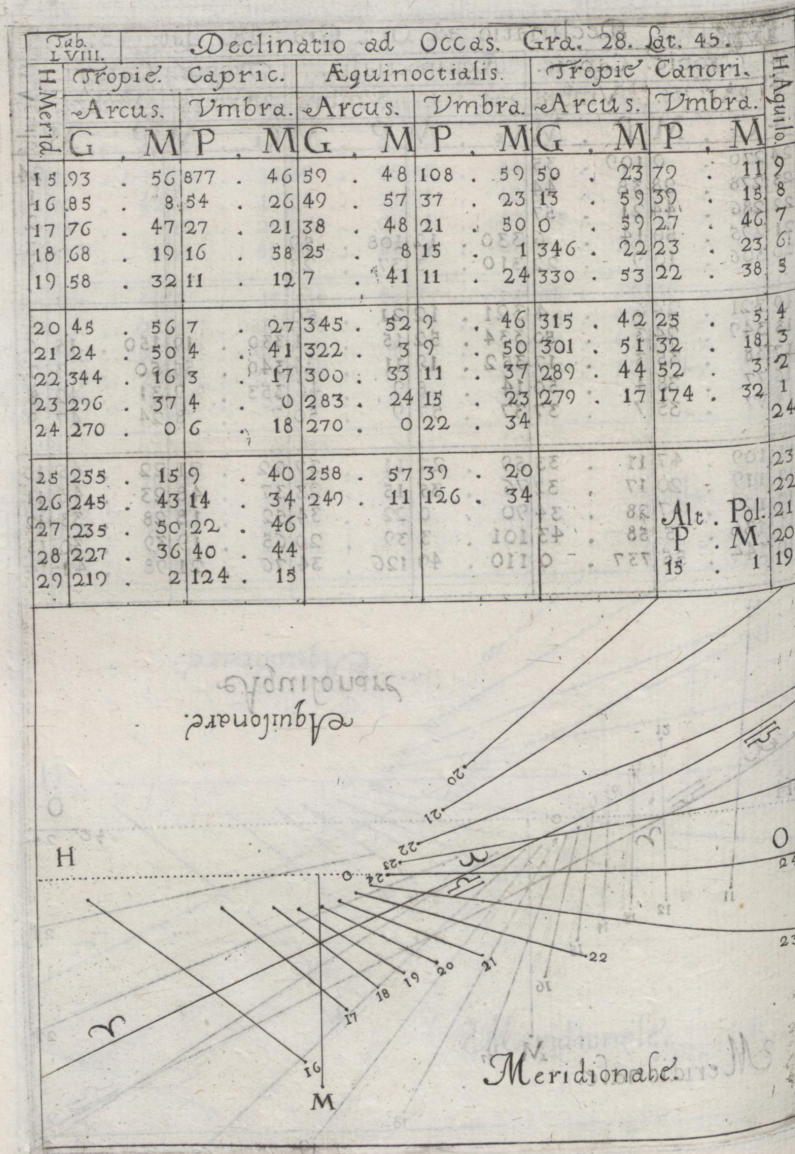 Tab. LVIII. Declinatio ad Occas. Gra. 28. Lat. 45.
H. Merid. Tropic. Capric. Æquinoctialis. Tropic Cancri. H. Aquilo.
Arcus. Vmbra. Arcus. Vmbra. Arcus. Vmbra.
G . M P . M G . M P . M G . M P . M
15 93 . 56 877 . 46 59 . 48 108 . 59 50 . 23 79 . 11 9
16 85 . 8 54 . 26 49 . 57 37 . 23 13 . 59 39 . 15 8
17 76 . 47 27 . 21 38 . 48 21 . 50 0 . 59 27 . 46 7
18 68 . 19 16 . 58 25 . 8 15 . 1 346 . 22 23 . 23 6
19 58 . 32 11 . 12 7 . 41 11 . 24 330 . 53 22 . 38 5
20 45 . 56 7 . 27 345 . 52 9 . 46 315 . 42 25 . 5 4
21 24 . 50 4 . 41 322 . 3 9 . 50 301 . 51 32 . 18 3
22 344 . 16 3 . 17 300 . 33 11 . 37 289 . 44 52 . 3 2
23 296 . 37 4 . 0 283 . 24 15 . 23 279 . 17 174 . 32 1
24 270 . 0 6 . 18 270 . 0 22 . 34 24
25 255 . 15 9 . 40 258 . 57 39 . 20 23
26 245 . 43 14 . 34 249 . 11 126 . 34 22
27 235 . 50 22 . 46 Alt . Pol. 21
28 227 . 36 40 . 44 P . M 20
29 219 . 2 124 . 15 15 . 1 19
Aquilonare.
20
21
22
23
24
H O
O
24
♈ ♎
♎
23
22
21
20
19
18
17
16
♈
M
Meridionale.